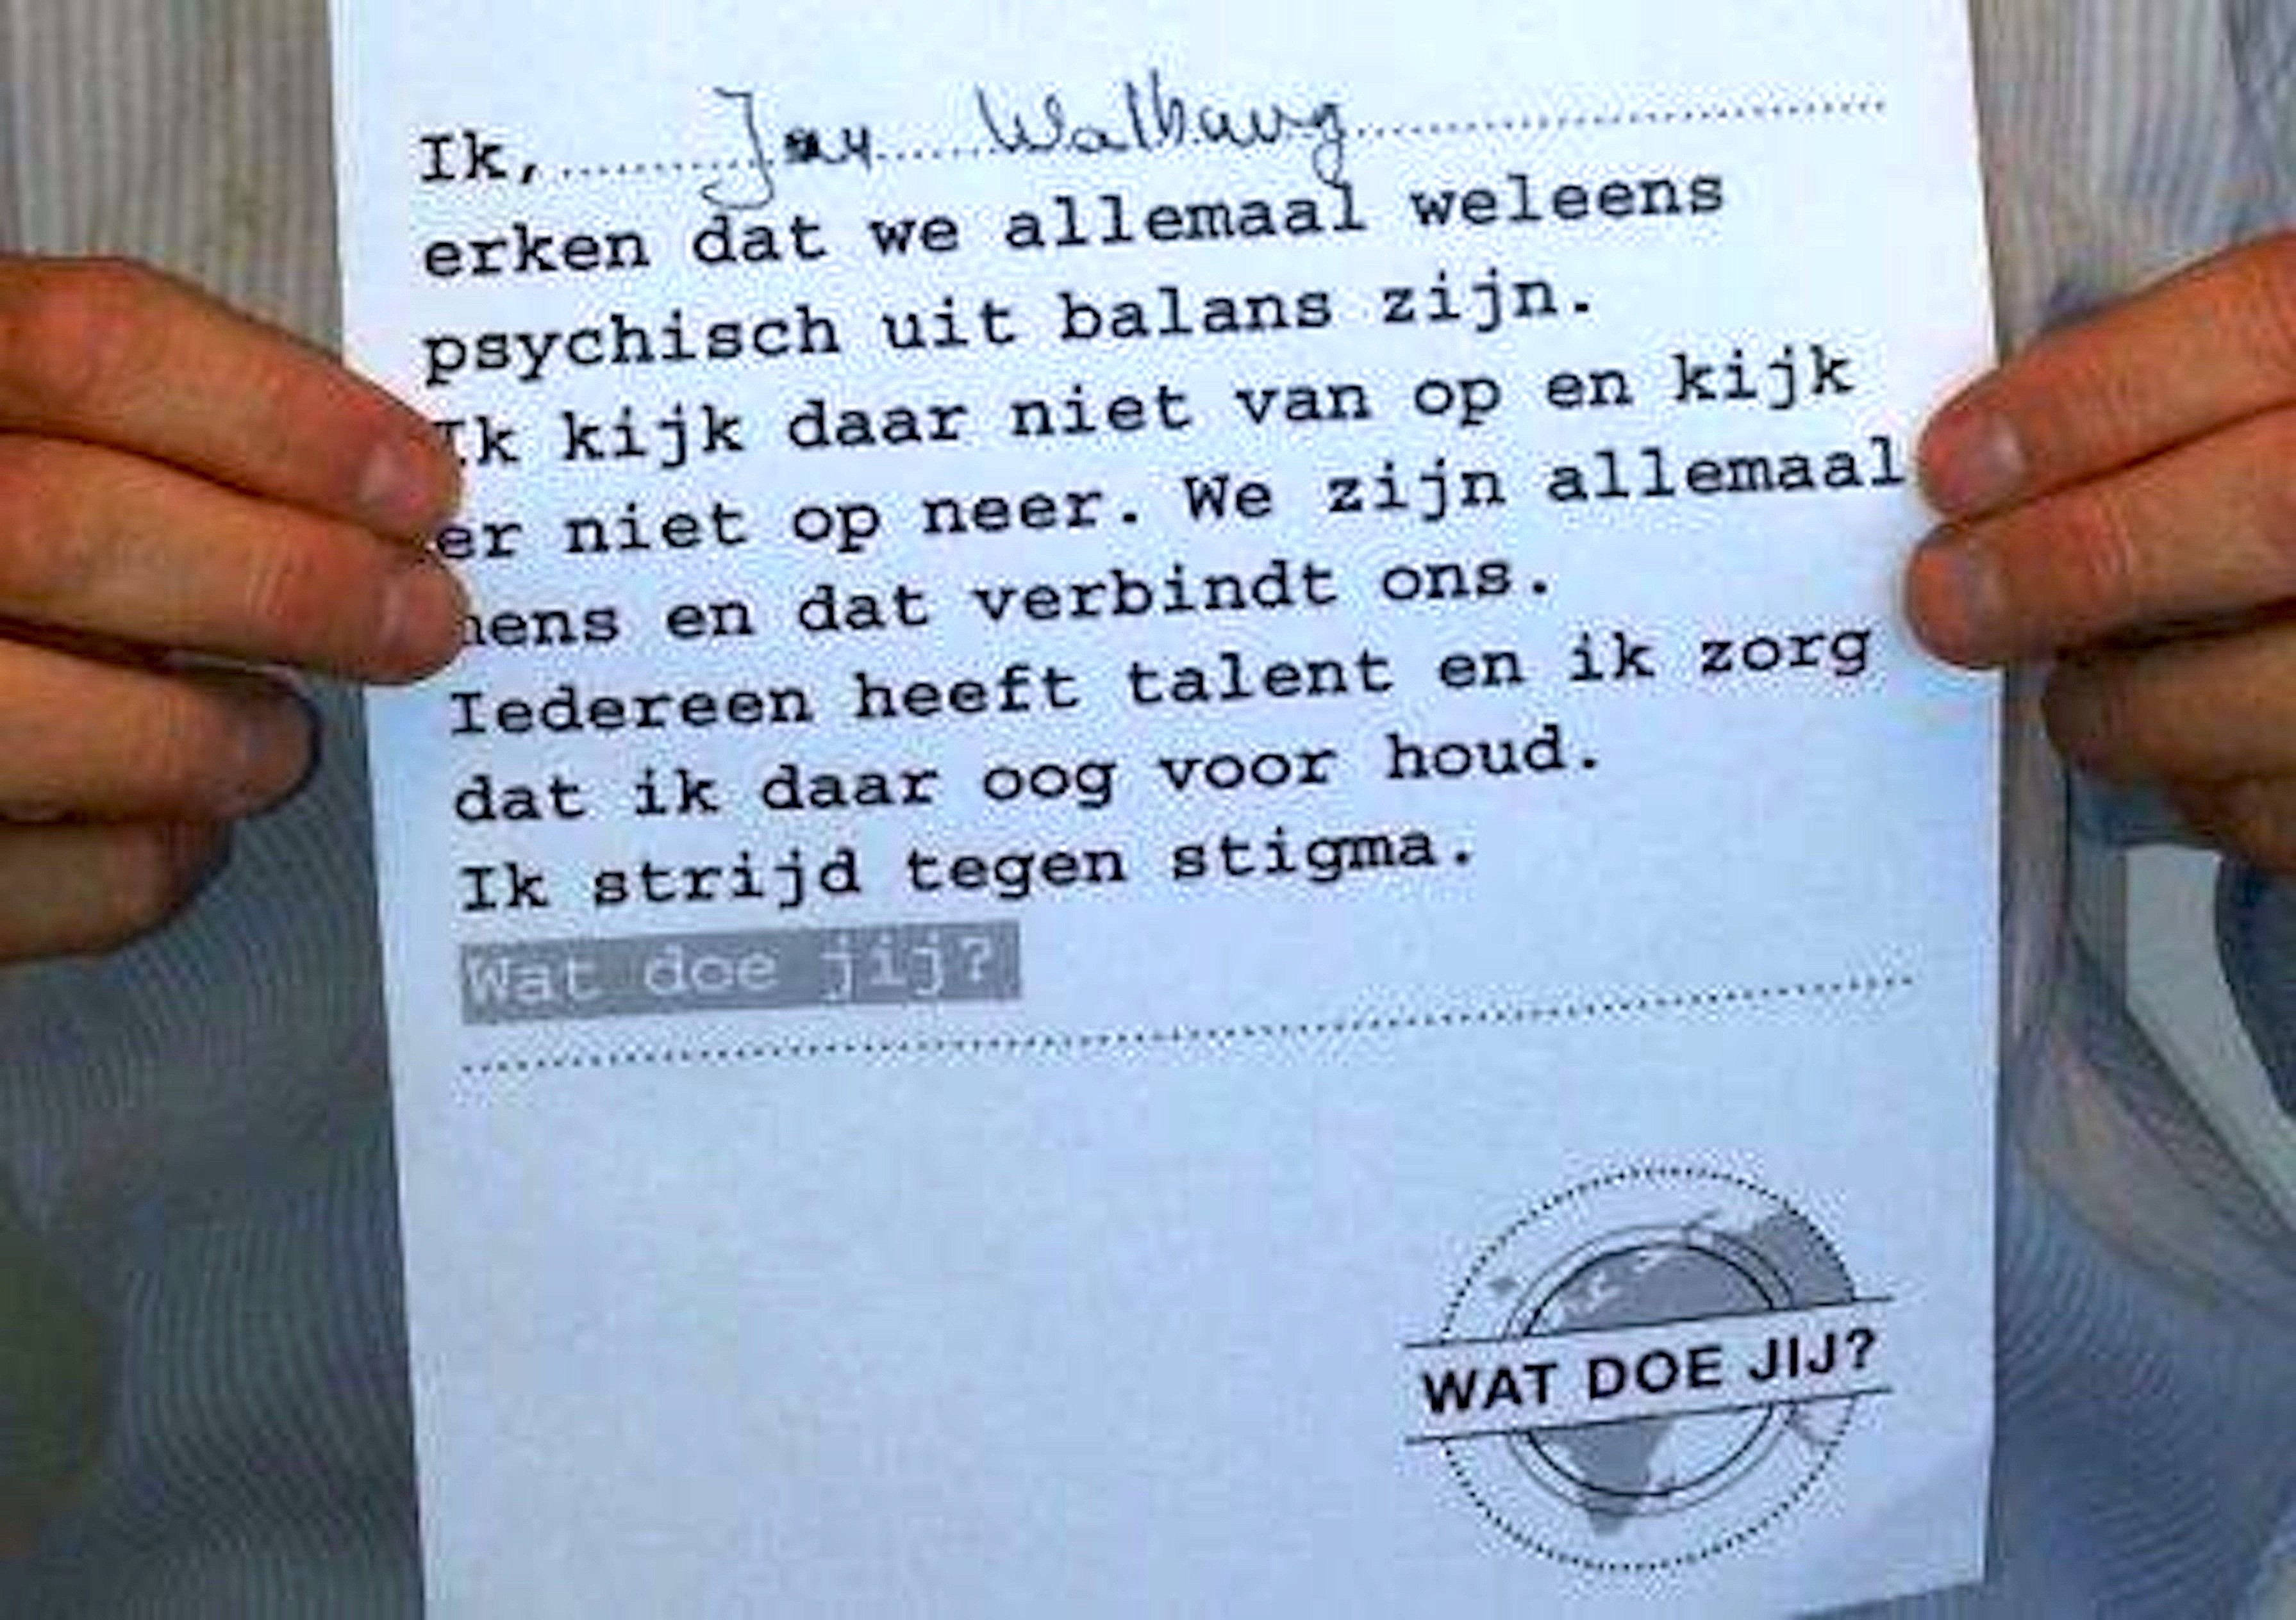 Ik, Jay Walburg
erken dat we allemaal weleens
psychisch uit balans zijn.
Ik kijk daar niet van op en kijk
er niet op neer. We zijn allemaal
mens en dat verbindt ons.
Iedereen heeft talent en ik zorg
dat ik daar oog voor houd.
Ik strijd tegen stigma.
Wat doe jij?
WAT DOE JIJ?